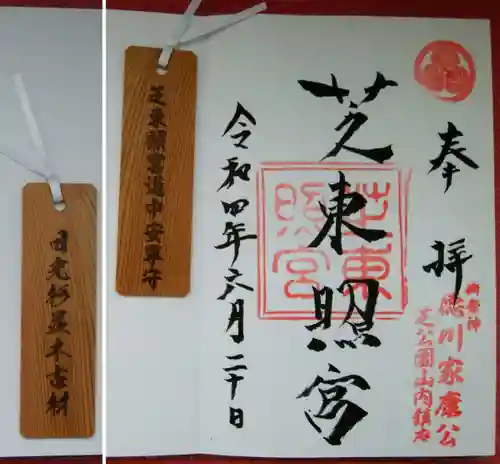 奉拝
御祭神
徳川家康公
芝公園山内鎮座
芝東照宮
芝東照宮
令和四年六月二十日
芝東照宮道中安全守
日光杉並木古材